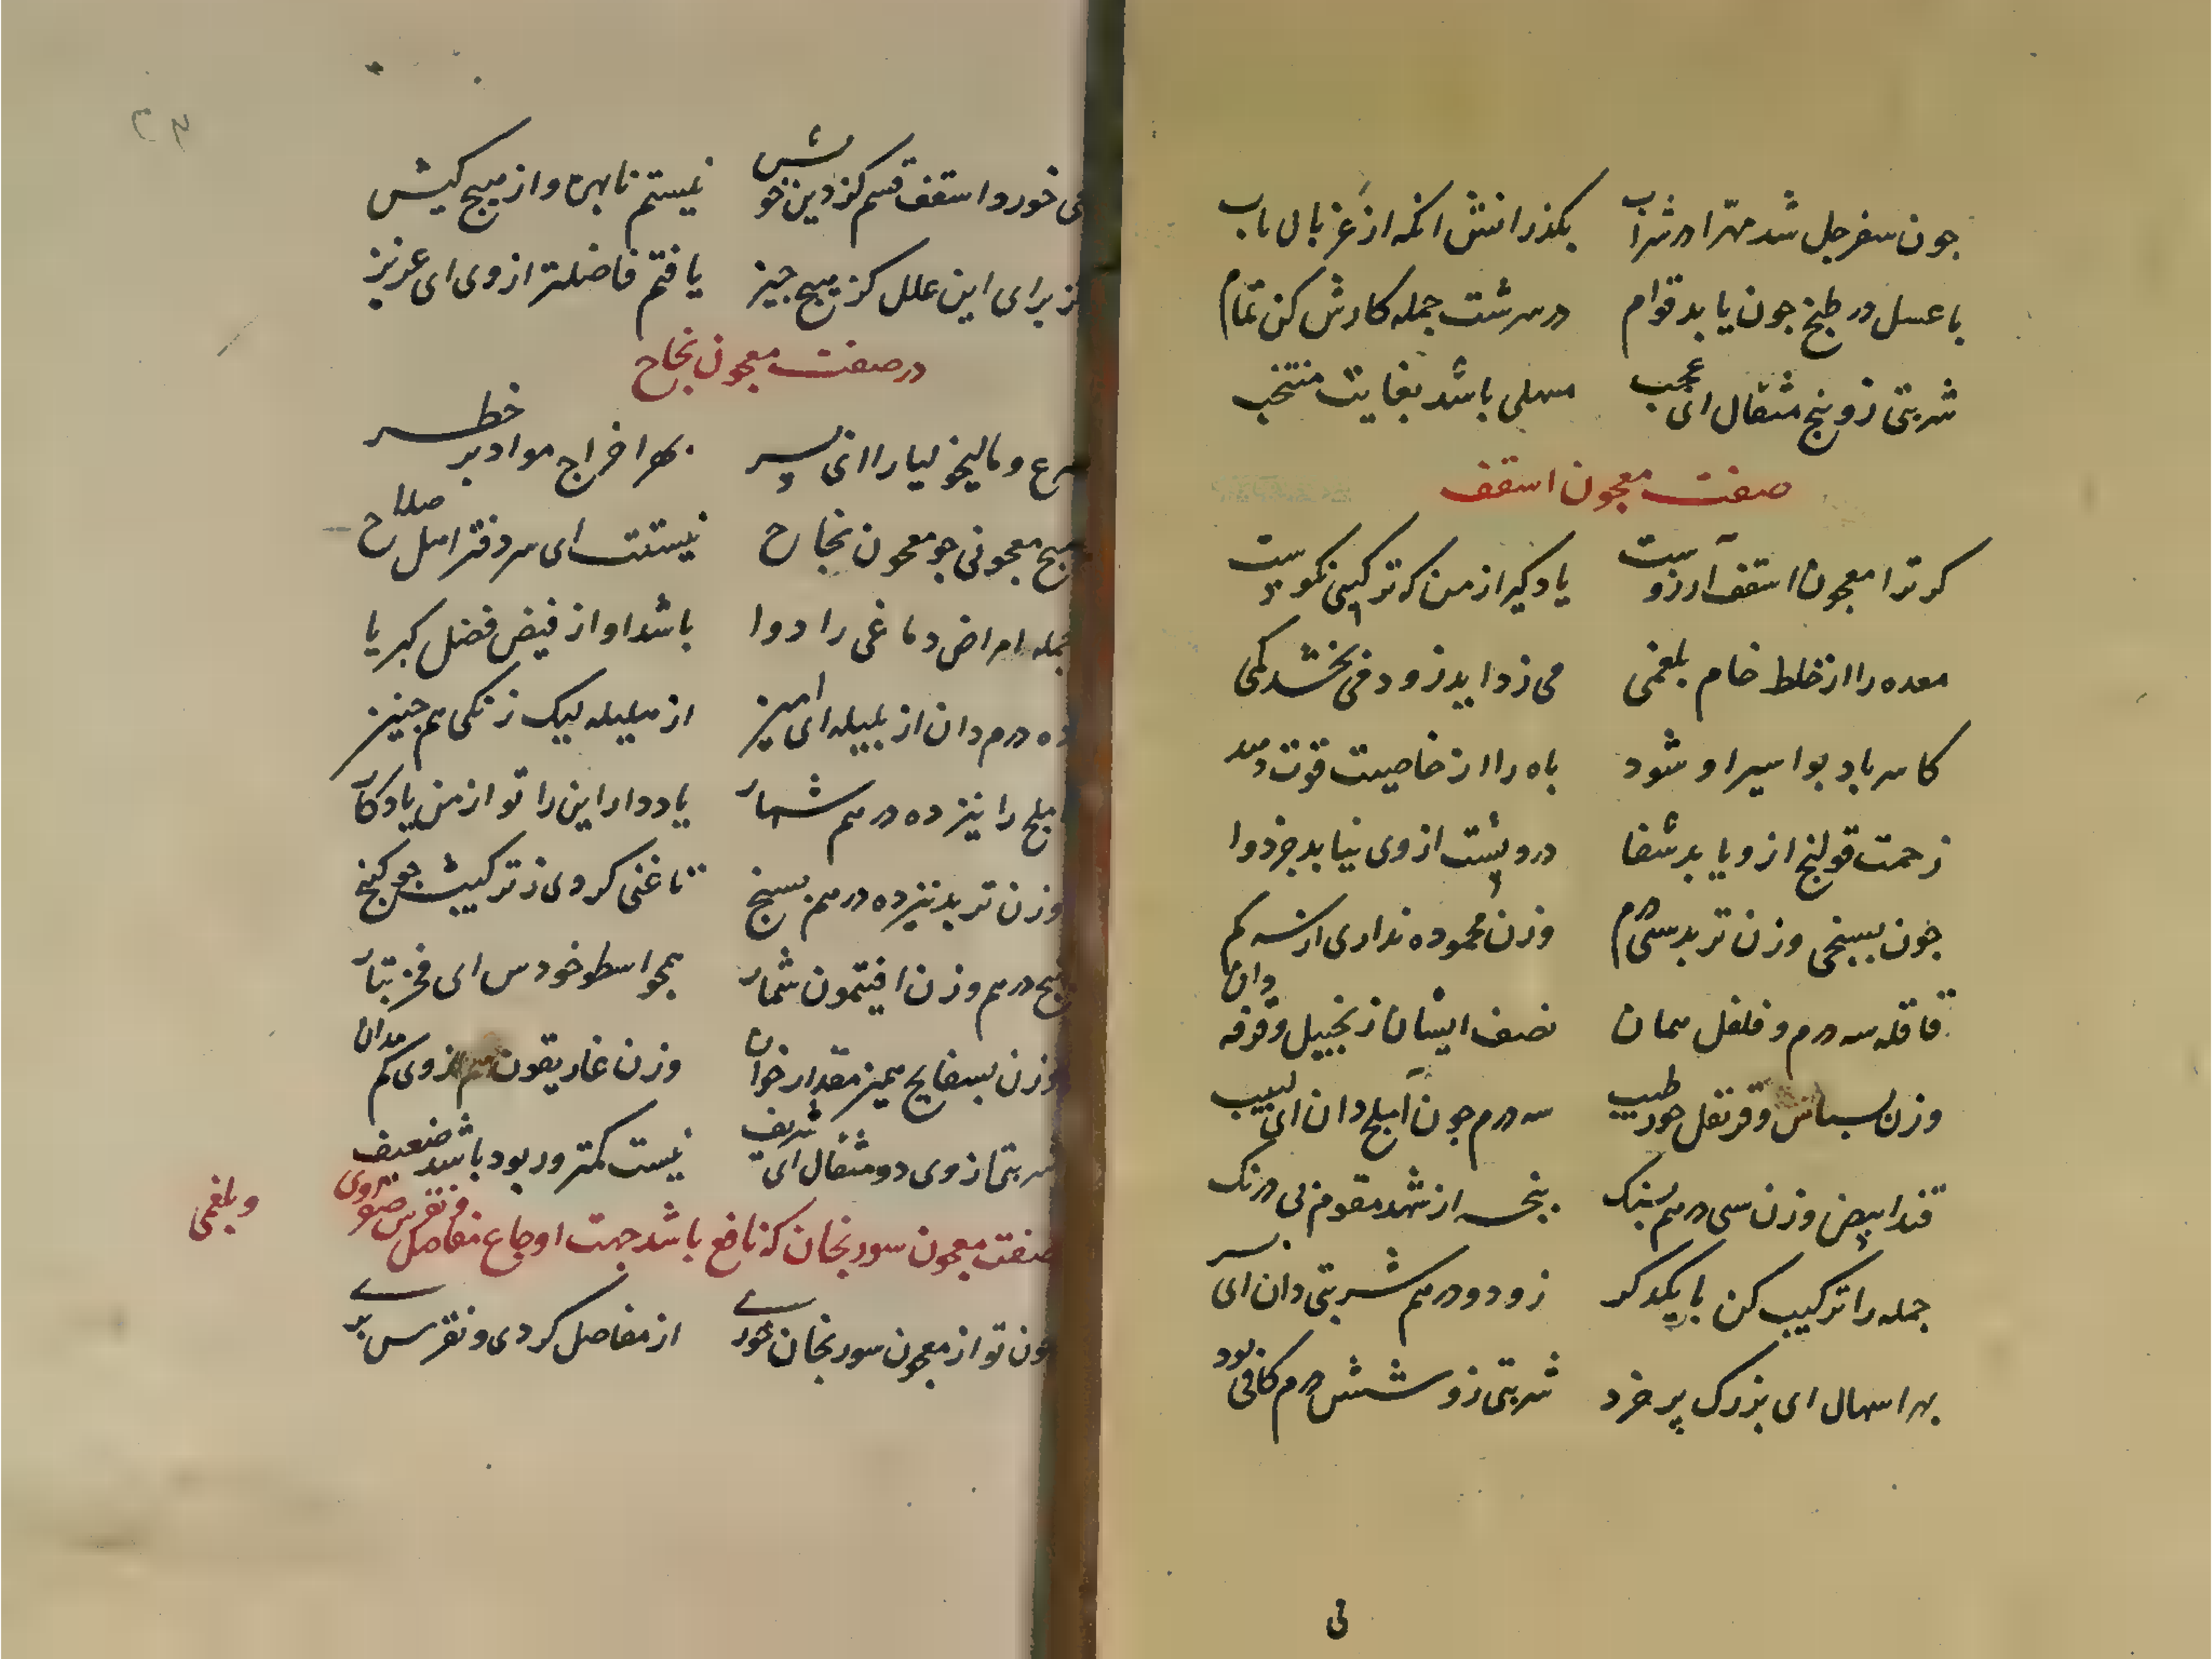 جون سفرجل شد مهرا در شراب بکذرانش انکه از غربال ناب
با عسل در طبخ جون یابد قوام در سرشت جمله کارش کن تمام
شربتی زو پنج مثقال ای عجب مسهلی باشد بغایت منتخب
صفت معجون اسقف
کر ترا معجون اسقف آرزوست یاد کیر از من که ترکیبی نکوست
معده را از خلط خام بلغمی می زداید زود فی بخشد کمی
کاسر باد بواسیر او شود باه را از خاصیت قوت دهد
زحمت قولنج ازو یابد شفا درد پشت از وی نیابد جز دوا
جون بسنجی وزن تربد سی درم وزن محموده نداری از سه کم
قاقله سه درم و فلفل همان نصف ایشان زنجبیل و قرفه دان
وزن بسباس و قرنفل جوز طیب سه درم جون آملج دان ای لبیب
قند ابیض وزن سی درهم بسنک پنجه از شهد مقوم بی درنک
جمله را ترکیب کن با یکدکر زو دو درهم شربتی دان ای پسر
بهر اسهال ای بزرک پر خرد شربتی زو شش درم کافی بود
می خورد اسقف قسم کز دین خویش نیستم نابهره و از هیچ کیش
کز برای این علل کز هیچ جیز یافتم فاضلتر از وی ای عزیز
در صفت معجون نجاح
صرع و مالیخولیا را ای پسر بهر اخراج مواد بر خطر
هیج معجونی جو معجون نجاح نیستت ای سر دفتر اهل صلاح
جمله امراض دماغی را دوا باشد او از فیض فضل کبریا
ده درم دان از بلیله ای امیز از هلیله لیک زنکی هم جنیز
املج را نیز ده درهم شمار یاد دار این را تو از من یادکار
وزن تربد نیز ده درهم بسنج تا غنی کردی ز ترکیبش جو کنج
پنج درهم وزن افیتمون شمار همجو اسطوخودس ای فخر تبار
وزن بسفایج همیز مقدار خوان وزن غاریقون هم از وی کم مدان
شربتی از وی دو مثقال ای شریف نیست کمتر ور بود باشد ضعیف
صفت معجون سورنجان که نافع باشد جهت اوجاع مفاصل و نقرس صفروی و بلغمی
جون تو از معجون سورنجان خوری از مفاصل کردی و نقرس بری
فی